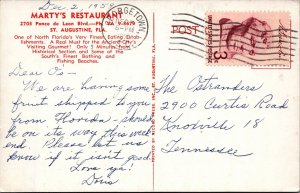 Dec 2, 1954
MARTY'S RESTAURANT
2703 Ponce de Leon Blvd.—Ph. VA 9-8679
ST. AUGUSTINE, FLA.
One of North Florida's Very Finest Eating Establishments. A Real Must for the Ancient City's Visiting Gourmet! Only 5 Minutes from Historical Section and Some of the South's Finest Bathing and Fishing Beaches.
Dear O's—
We are having some
fruit shipped to you
from Florida - should
be on its way this week
end. Please let us
know if it isn't good.
Love ya!
Doris
POST
3
The Ostranders
2900 Curtis Road
Knoxville 18
Tennessee